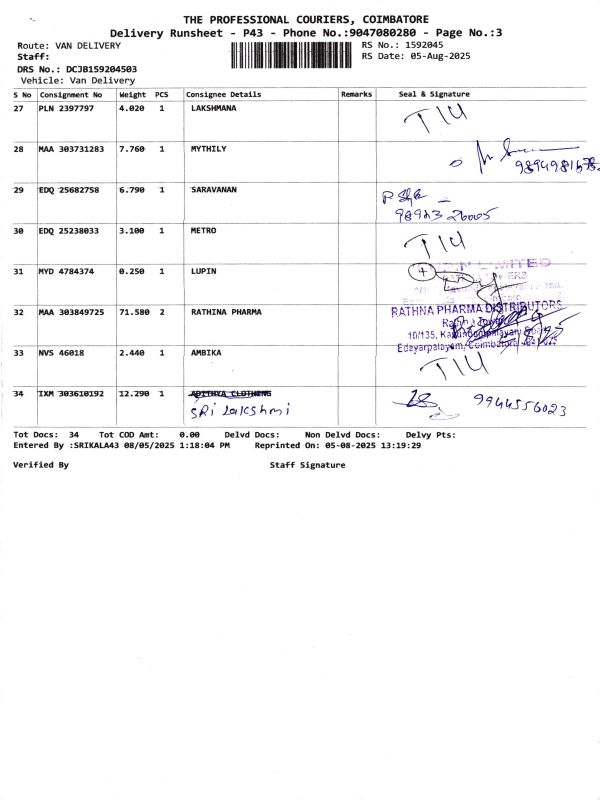 THE PROFESSIONAL COURIERS, COIMBATORE
Delivery Runsheet - P43 - Phone No.:9047080280 - Page No.:3
Route: VAN DELIVERY
RS No.: 1592045
Staff:
RS Date: 05-Aug-2025
DRS No.: DCJB159204503
Vehicle: Van Delivery
S No Consignment No Weight PCS Consignee Details Remarks Seal & Signature
27 PLN 2397797 4.020 1 LAKSHMANA TIU
28 MAA 303731283 7.760 1 MYTHILY
29 EDQ 25682758 6.790 1 SARAVANAN
30 EDQ 25238033 3.100 1 METRO TIU
31 MYD 4784374 0.250 1 LUPIN LIMITED
32 MAA 303849725 71.580 2 RATHINA PHARMA
RATHNA PHARMA DISTRIBUTORS
10/135,
Edeyarpalayam, Coimbatore
33 NVS 46018 2.440 1 AMBIKA TIU
34 IXM 303610192 12.290 1 ADITHYA CLOTHING
SRi Lakshmi 9944556023
Tot Docs: 34 Tot COD Amt: 0.00 Delvd Docs: Non Delvd Docs: Delvy Pts:
Entered By :SRIKALA43 08/05/2025 1:18:04 PM Reprinted On: 05-08-2025 13:19:29
Verified By Staff Signature